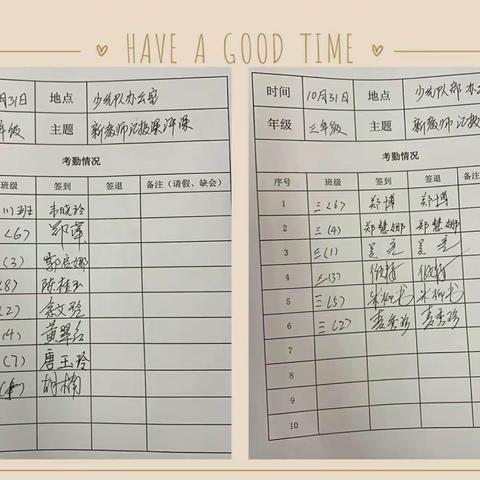 HAVE A GOOD TIME
月31日 地点 少先队办公室
年级 主题 新教师汇报课评课
考勤情况
班级 签到 签退 备注（请假、缺会）
(1)班
(6)
(3)
(8) 陈桂玉
(2) 余文玲
(4) 黄翠红
(7) 唐玉玲
胡楠
时间 10月31日 地点 少先队部办
年级 三年级 主题 新教师汇报
考勤情况
序号 班级 签到 签退 备注（请假、缺
1 三(6) 郑博 郑博
2 三(4) 郑慧娜 郑慧娜
3 三(1)
4 三(3)
5 三(5)
6 三(2) 袁秀珍 袁秀珍
7
8
9
10